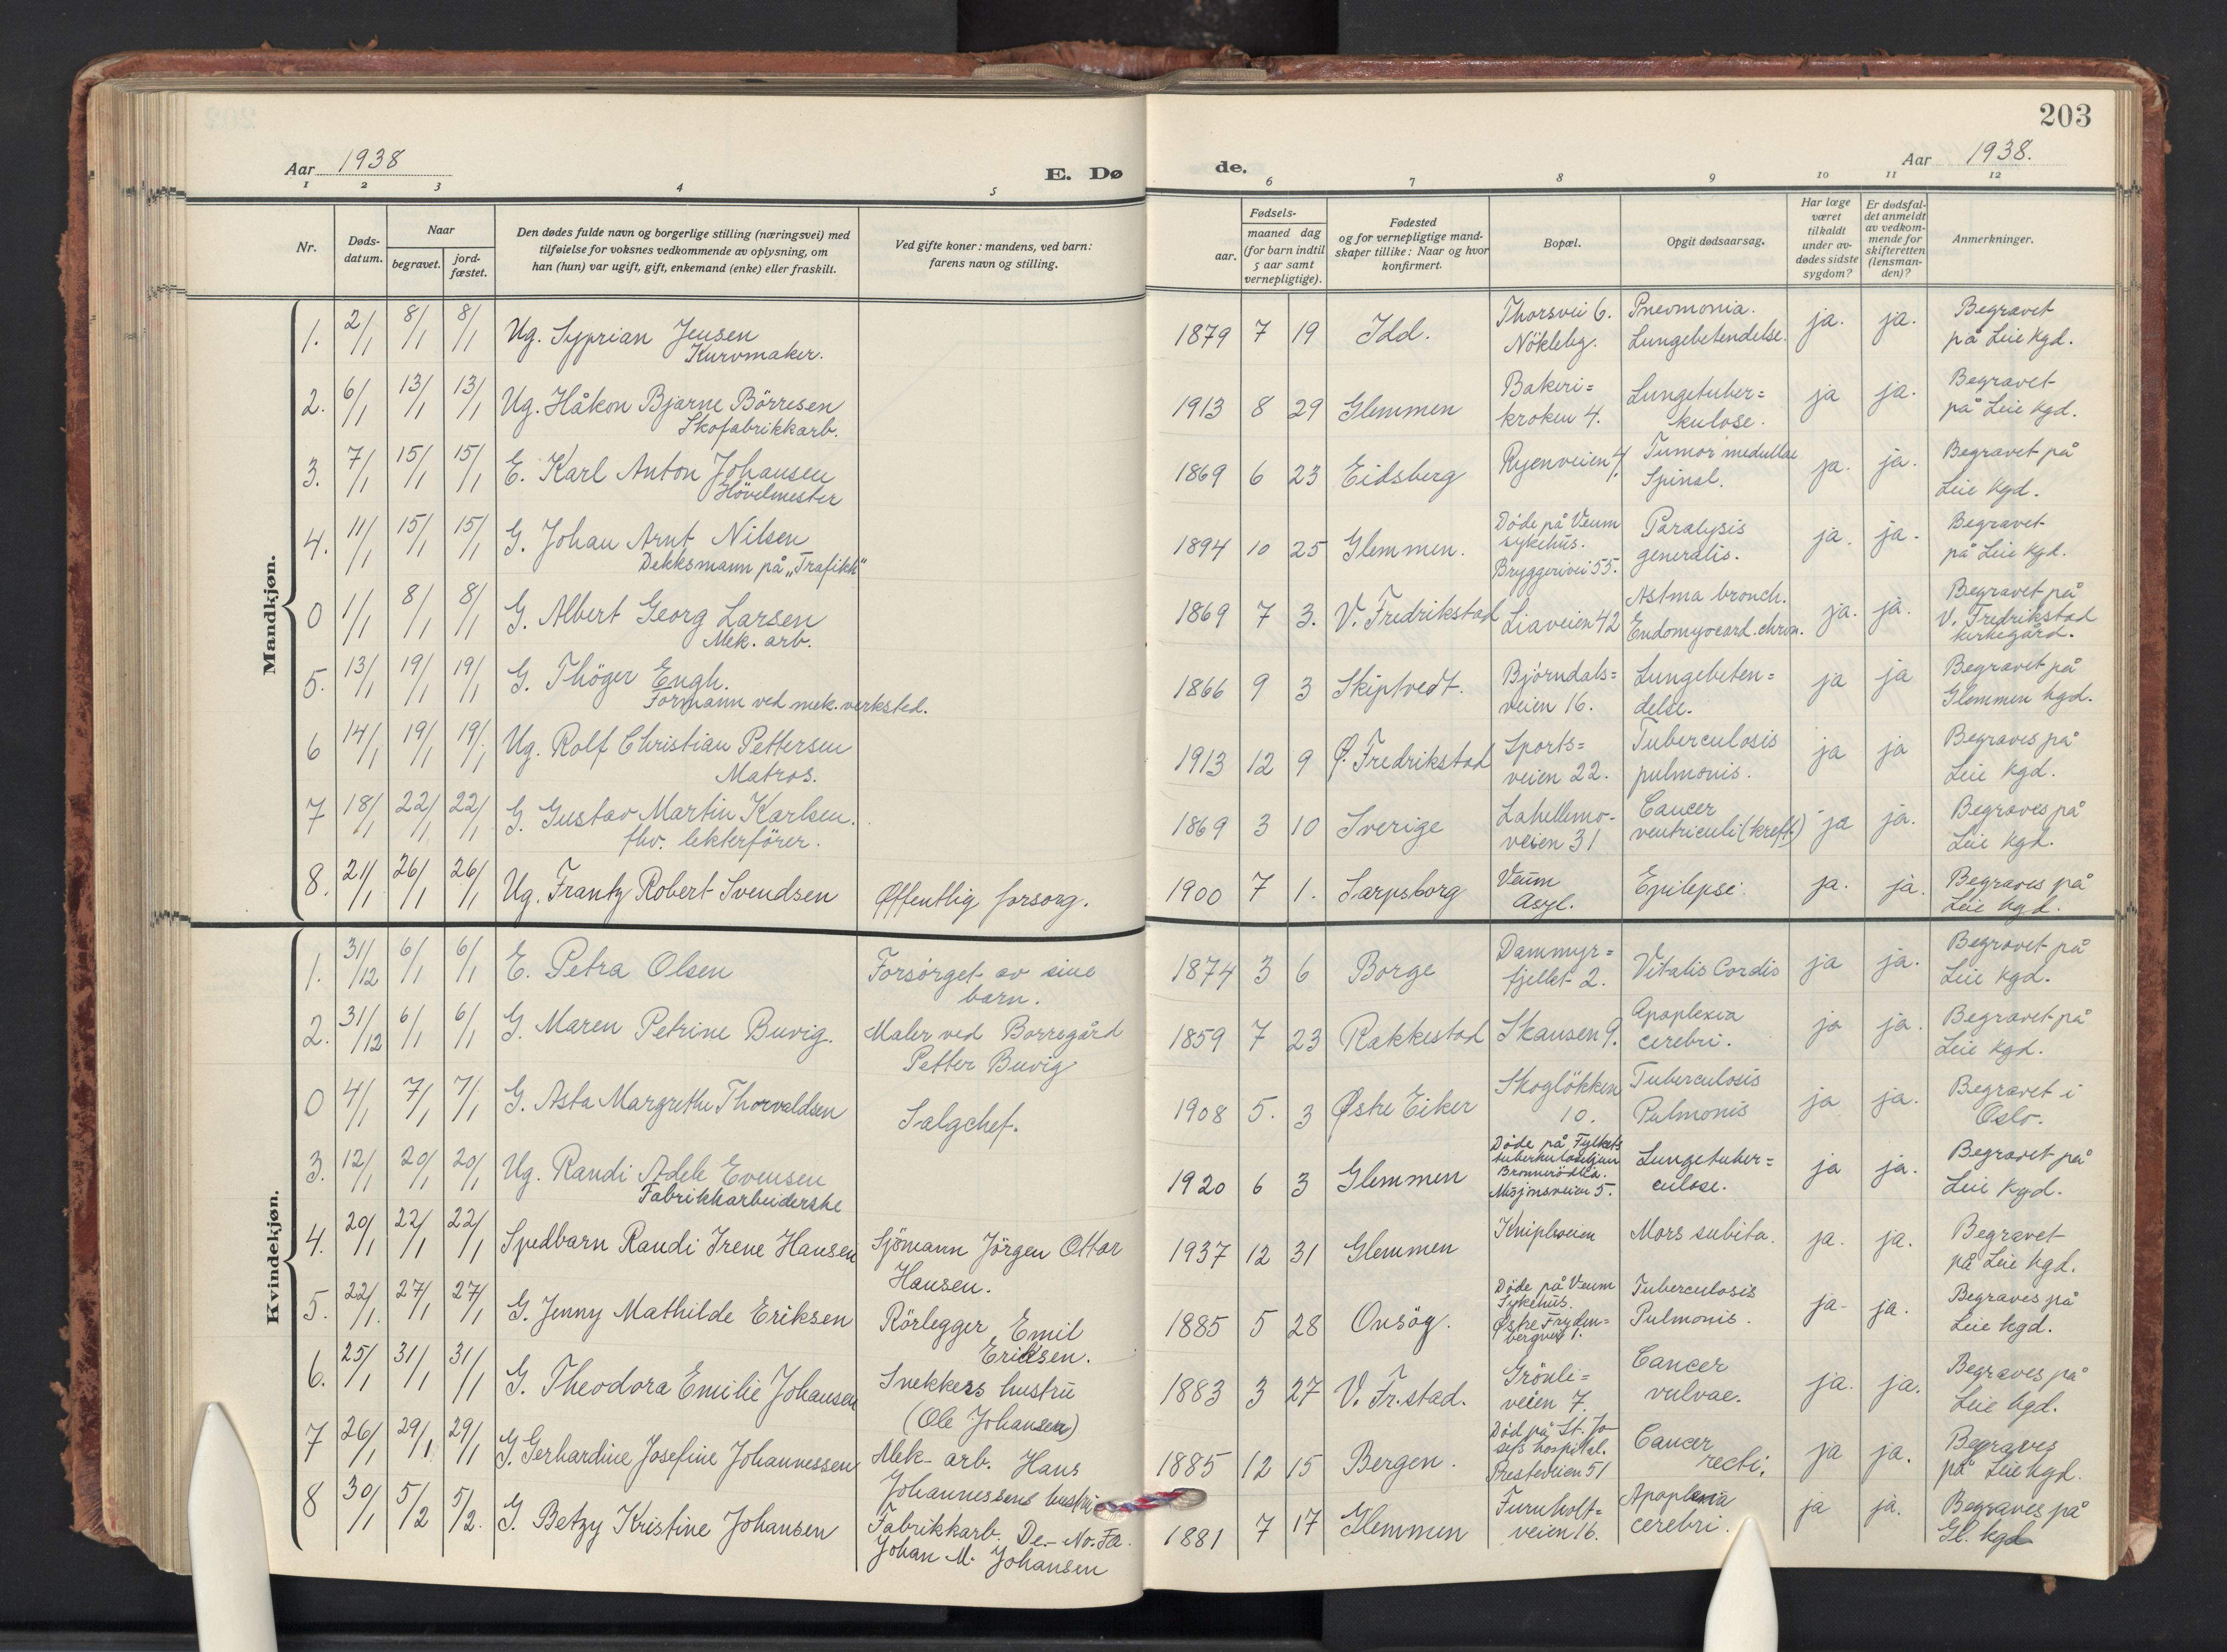 203
Aar 1938
E. Dø
de.
Aar 1938.
1 2 3 4 5 6 7 8 9 10 11 12
Nr.
Døds-
datum.
Naar
begravet.
jord-
fæstet.
Den dødes fulde navn og borgerlige stilling (næringsvei) med
tilføielse for voksnes vedkommende av oplysning, om
han (hun) var ugift, gift, enkemand (enke) eller fraskilt.
Ved gifte koner: mandens, ved barn:
farens navn og stilling.
Fødsels-
aar.
maaned dag
(for barn indtil
5 aar samt
vernepligtige).
Fødested
og for vernepligtige mand-
skaper tillike: Naar og hvor
konfirmert.
Bopæl.
Opgit dødsaarsag.
Har læge
været
tilkaldt
under av-
dødes sidste
sygdom?
Er dødsfal-
det anmeldt
av vedkom-
mende for
skifteretten
(lensman-
den)?
Anmerkninger.
Mandkjøn.
1. 2/1 8/1 8/1 Ug. Syprian Jensen
Kurvmaker.
1879 7 19 Idd.
Thorsvei 6.
Nökleby.
Pneomonia.
Lungebetendelse.
ja. ja.
Begravet
på Leie Kgd.
2. 6/1 13/1 13/1 Ug. Håkon Bjarne Börresen
Skofabrikkarb.
1913 8 29 Glemmen
Bakeri=
kroken 4.
Lungetuber=
kulose.
ja ja.
Begravet
på Leie kgd.
3. 7/1 15/1 15/1 E. Karl Anton Johansen
Hövelmester
1869 6 23 Eidsberg
Ryenveien 4.
Tumor medullae
Spinal.
ja. ja.
Begravet på
Leie kgd.
4. 11/1 15/1 15/1 G. Johan Arnt Nilsen
Dekksmann på „Trafikk"
1894 10 25 Glemmen.
Döde på Veum
sykehus.
Bryggerivei 55.
Paralysis
generalis.
ja. ja.
Begravet
på Leie kgd.
0 1/1 8/1 8/1 G. Albert Georg Larsen
Mek. arb.
1869 7 3. V. Fredrikstad
Liaveien 42
Astma bronch.
Endomyocard. chron.
ja. ja.
Begravet på
V. Fredrikstad
kirkegård.
5. 13/1 19/1 19/1 G. Thöger Engh.
Formann ved mek. verksted.
1866 9 3 Skiptvedt.
Björndals=
veien 16.
Lungebeten=
delse.
ja ja
Begravet på
Glemmen kgd.
6 14/1 19/1 19/1 Ug. Rolf Christian Pettersen
Matros.
1913 12 9 Ø. Fredrikstad
Sports=
veien 22.
Tuberculosis
pulmonis.
ja ja
Begraves på
Leie kgd.
7 18/1 22/1 22/1 G. Gustav Martin Karlsen.
fhv. lekterförer.
1869 3 10 Sverige
Lahellemo-
veien 31
Cancer
ventriculi (kreft)
ja ja.
Begraves på
Leie kgd.
8. 21/1 26/1 26/1 Ug. Frantz Robert Svendsen
Øffentlig forsorg.
1900 7 1. Sarpsborg
Veum
Asyl.
Epilepsi.
ja. ja.
Begraves på
Leie kgd.
Kvindekjøn.
1. 31/12 6/1 6/1 E. Petra Olsen
Forsörget av sine
barn.
1874 3 6 Borge
Dammyr=
fjellet 2.
Vitalis Cordis
ja ja.
Begravet på
Leie kgd.
2. 31/12 6/1 6/1 G. Maren Petrine Buvig.
Maler ved Borregård
Petter Buvig
1859 7 23 Rakkestad
Skansen 9.
Apoplexia
cerebri.
ja ja.
Begravet på
Leie kgd.
0 4/1 7/1 7/1 G. Asta Margrethe Thorvaldsen
Salgchef.
1908 5. 3 Østre Eiker
Skoglökken
10.
Tuberculosis
Pulmonis
ja ja.
Begravet i
Oslo.
3. 12/1 20/1 20/1 Ug. Randi Adele Evensen
Fabrikkarbeiderske
1920 6 3 Glemmen
Döde på Fylkets
Misjonsveien 5.
Lungetuber=
culose.
ja ja.
Begravet på
Leie kgd.
4. 20/1 22/1 22/1 Spedbarn Randi Irene Hansen
Sjömann Jörgen Ottar
Hansen.
1937 12 31 Glemmen
Knipleveien
Mors subita.
ja. ja.
Begravet
på Leie kgd.
5. 22/1. 27/1 27/1 G. Jenny Mathilde Eriksen
Rörlegger Emil
Eriksen.
1885 5 28 Onsöy.
Döde på Veum
Sykehus.
Østre Fryden=
bergvei 1.
Tuberculosis
Pulmonis.
ja- ja.
Begraves på
Leie kgd.
6. 25/1 31/1 31/1 G. Theodora Emilie Johansen
Snekkers hustru
(Ole Johansen)
1883 3 27 V. Fr.stad.
Grönli=
veien 7.
Cancer
vulvae.
ja. ja.
Begraves på
Leie kgd.
7 26/1 29/1 29/1 G. Gerhardine Josefine Johannessen
Mek- arb. Hans
Johannessens hustru
1885 12 15 Bergen.
Död på St. Jo-
sefs hospital.
Presteveien 51
Cancer
recti.
ja ja.
Begraves
på Leie kgd.
8 30/1 5/2 5/2. G. Betzy Kristine Johansen
Fabrikkarb. De.-No-Fa.
Johan M. Johansen
1881 7 17 Glemmen
Furuholt=
veien 16.
Apoplexia
cerebri.
ja ja.
Begraves på
Gl. kgd